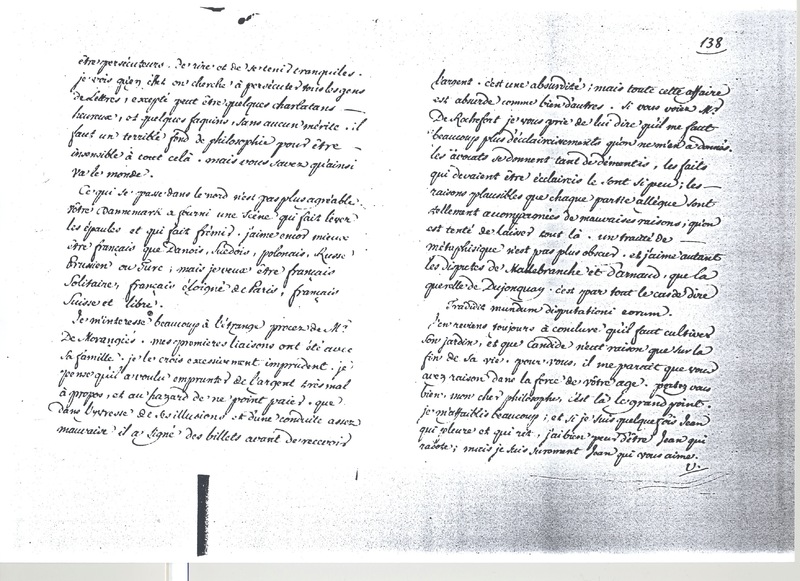 être persécuteurs. De rire et de se tenir tranquiles.
je vois qu'en effet on cherche à persécuter tous les gens
de Lettres, excepté peut être quelques charlatans
heureux, et quelques faquins, sans aucun mérite. il
faut un terrible fond de philosophie pour être
insensible à tout celà. mais vous savez qu'ainsi
va le monde.
Ce qui se passe dans le nord n'est pas plus agréable.
Vôtre Dannemark a fourni une scène qui fait lever
les épaules et qui fait frémir. j'aime encor mieux
être français que Danois, Suédois, polonais, Russe
Prussien ou Turc; mais je veux être français
Solitaire, français éloigné de Paris, français
Suisse et libre.
Je m'interesse beaucoup à l'étrange procez de Mr.
De Morangiés. mes premières liaisons ont été avec
Sa famille. je le crois excessivement imprudent. je
pense qu'il a voulu emprunter de l'argent très mal
à propos, et au hazard de ne point paier. que
dans l'yvresse de ses illusions et d'une conduite assez
mauvaise il a signé des billets avant de recevoir
138
l'argent. c'est une absurdité; mais toute cette affaire
est absurde comme bien d'autres. Si vous voiez Mr.
De Rochefort je vous prie de lui dire qu'il me faut
beaucoup plus d'éclaircissements qu'on ne m'en a donnés.
les avocats se donnent tant de démentis, les faits
qui devaient être éclaircis le sont si peu; les
raisons plausibles que chaque partie allègue sont
tellement accompagnées de mauvaises raisons; qu'on
est tenté de laisser tout là. un traité de
métaphisique n'est pas plus obscur. et j'aime autant
les disputes de Mallebranche et d'arnaud, que la
querelle de Dujonquay. c'est par tout le cas de dire
Tradidit mundum disputationi eorum.
J'en reviens toujours à conclure qu'il faut cultiver
son jardin, et que Candide n'eut raison que sur la
fin de sa vie. pour vous, il me paraît que vous
avez raison dans la force de vôtre âge. portez vous
bien, mon cher philosophe, c'est là le grand point.
je m'affaiblis beaucoup; et si je suis quelquefois Jean
qui pleure et qui rit, j'ai bien peur d'être Jean qui
radote; mais je suis surement Jean qui vous aime.
V.